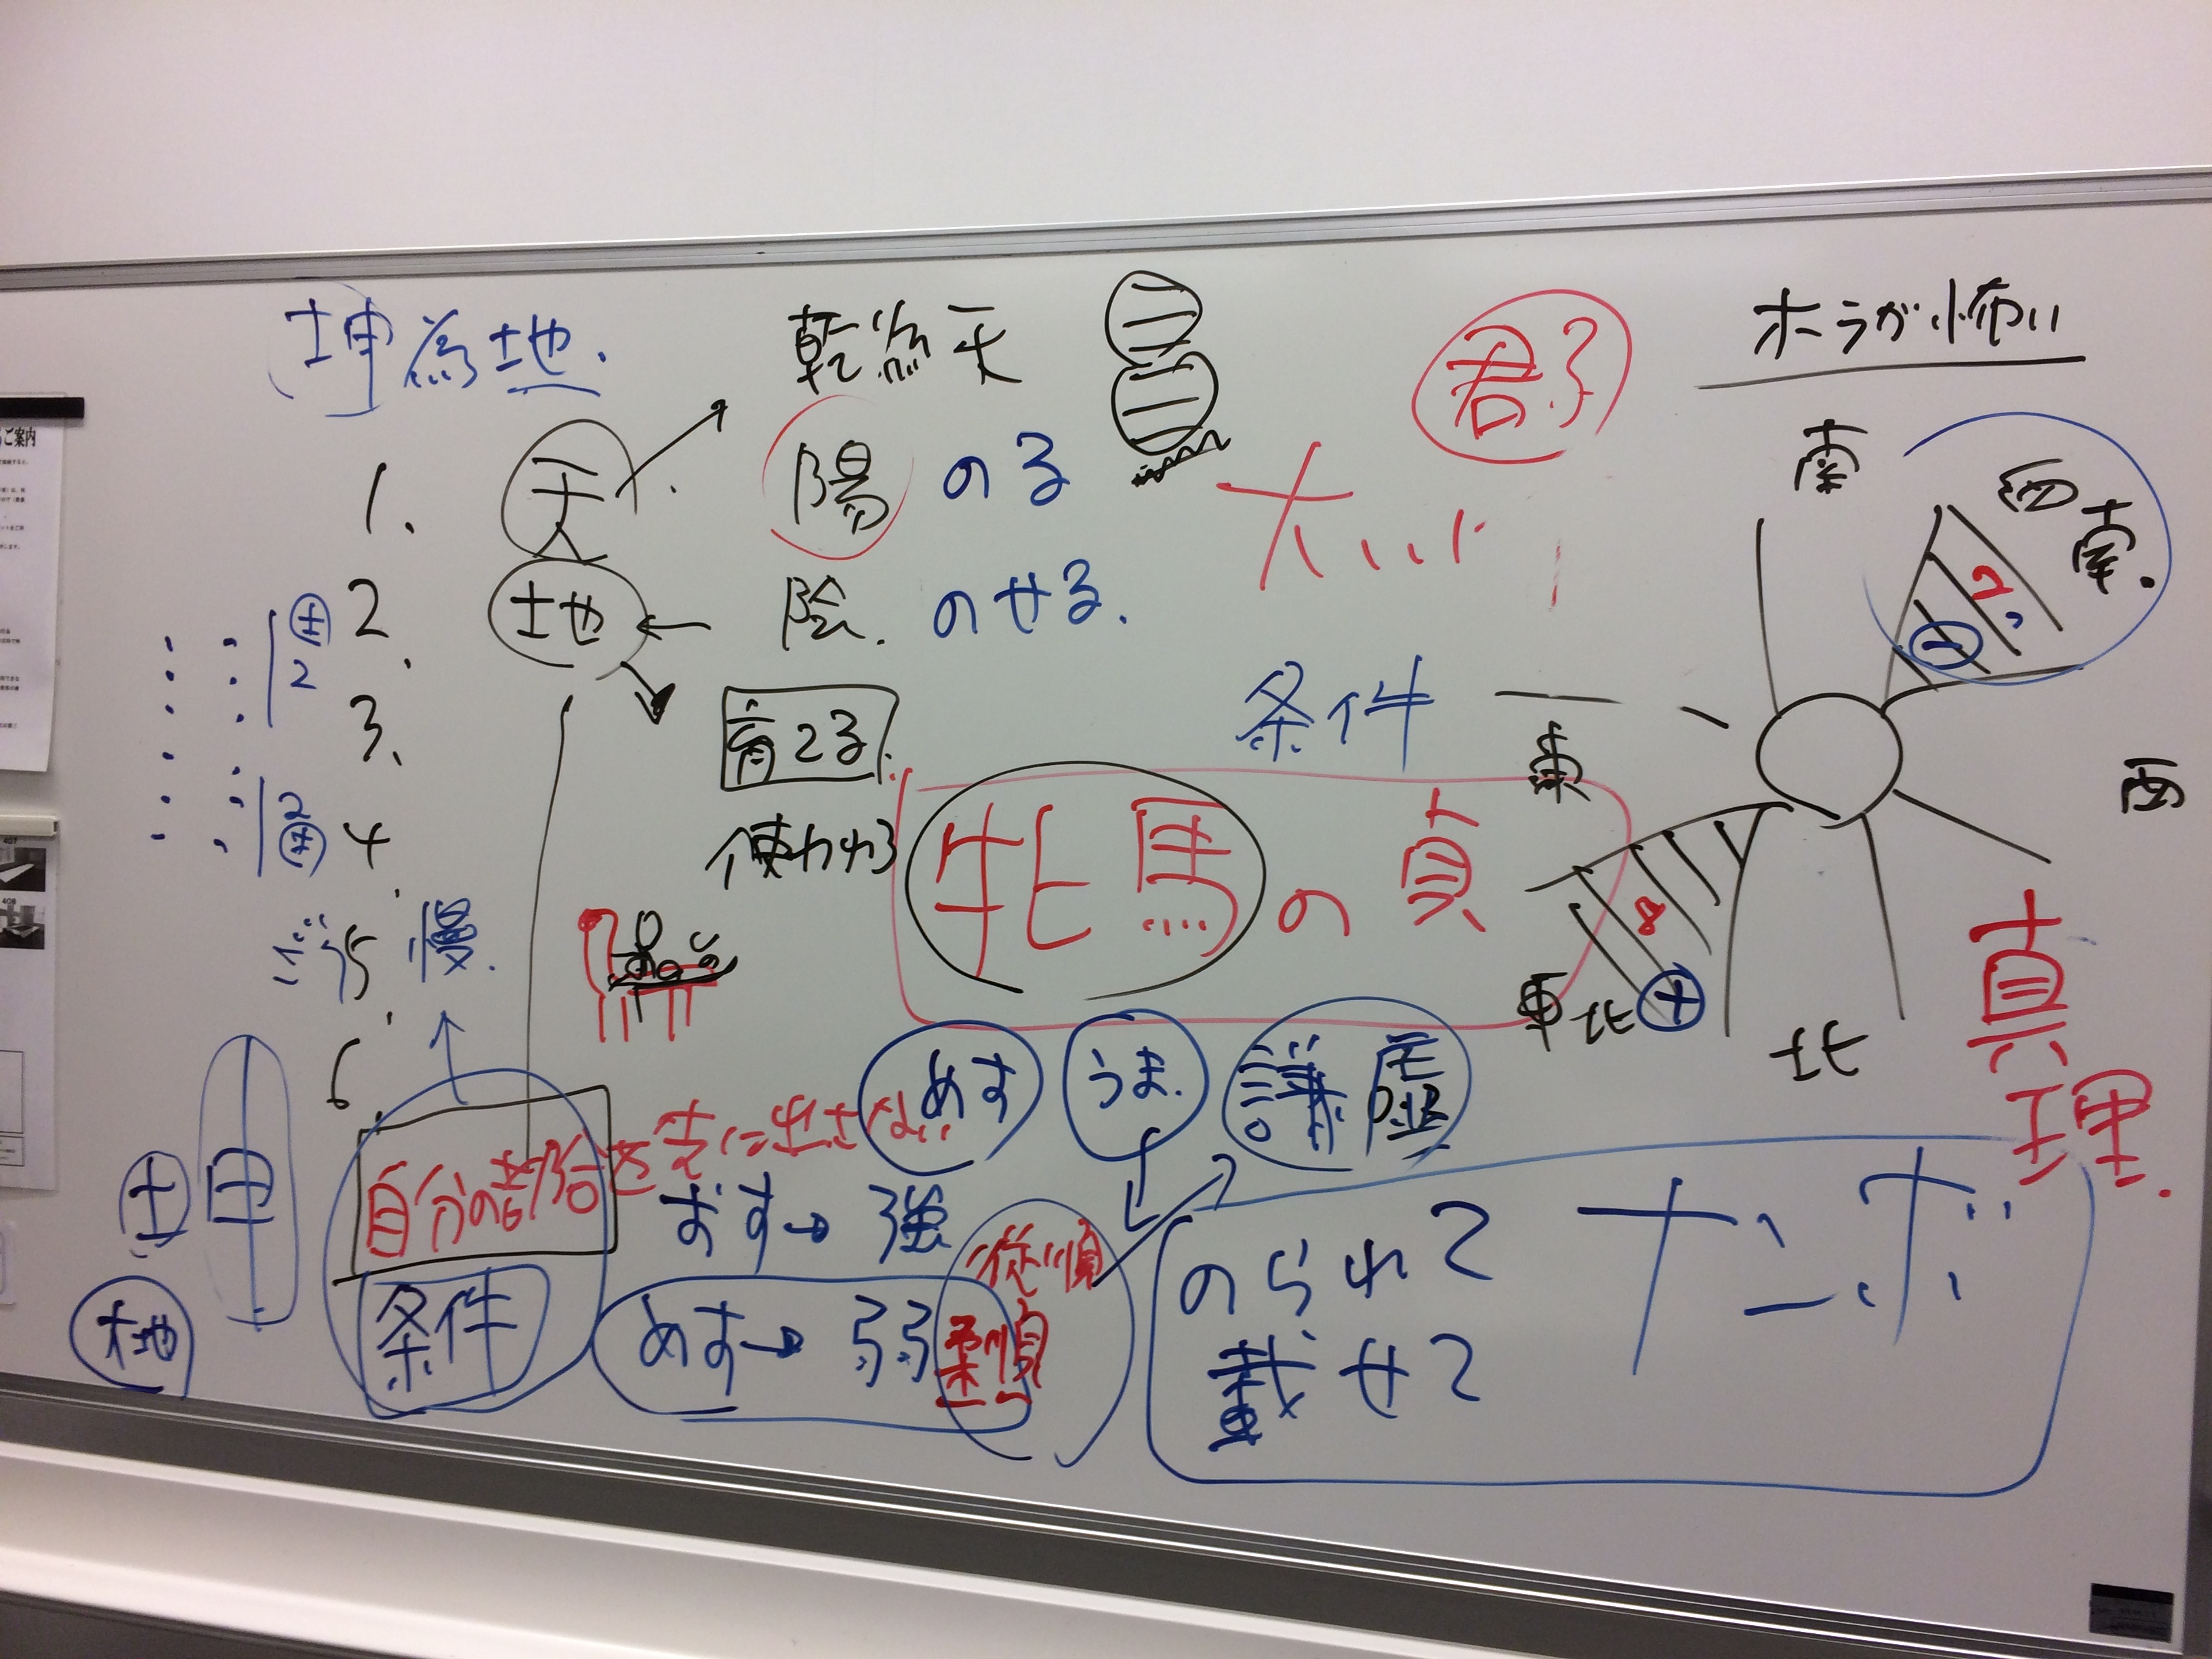 坤為地.
乾為天
君子
ホラが怖い
1.
天
陽 のる
大
南
西南.
2,
2.
人
地
陰. のせる.
土
2
一
3.
育てる.
条件
東
西
2
土
4.
使われる
牝馬の貞
8
慢.
5.
東北
十
北
真理.
6.
めす
うま.
謙虚
自分の都合を表に出さない
おす→強
従順
土
申
のられて
ナンボ
大地
条件
めす→弱
柔順
載せて